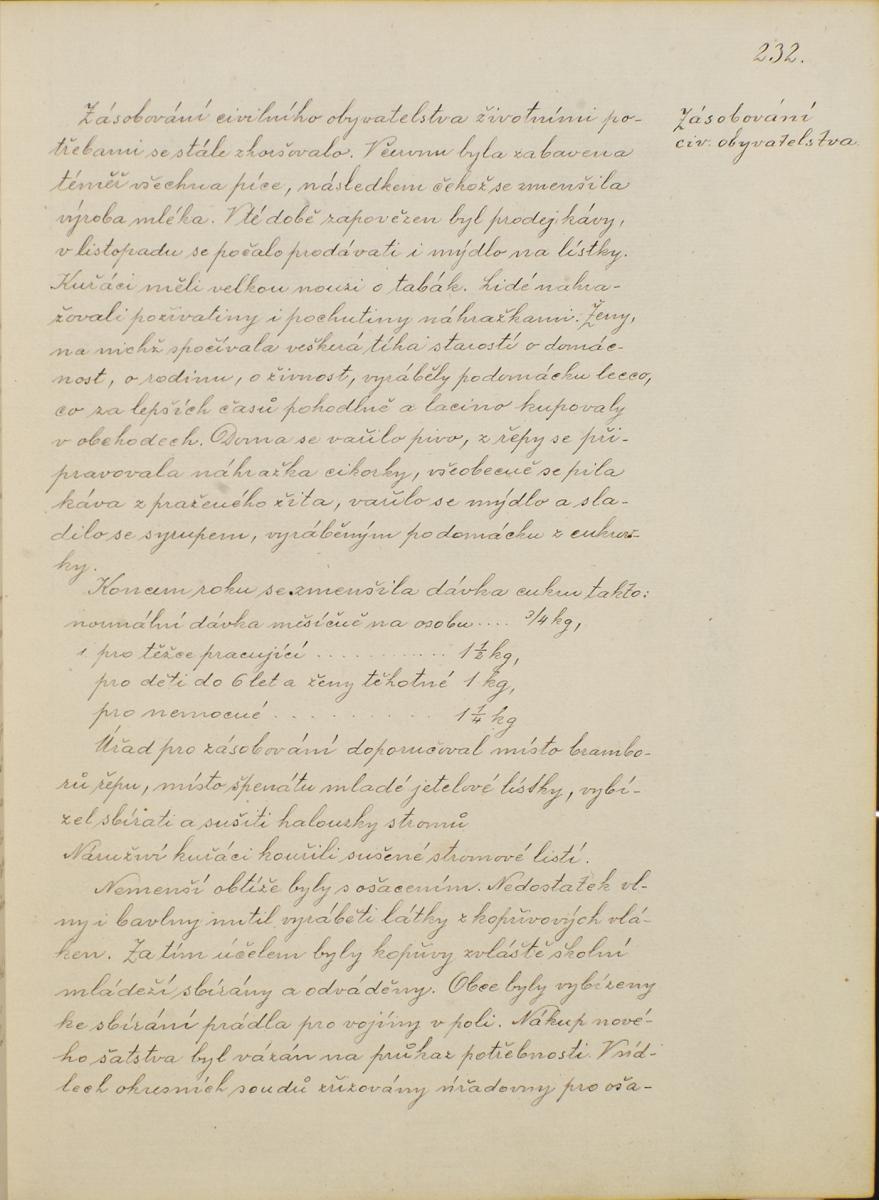 232.
Zásobování civilního obyvatelstva životními po-
třebami se stále zhoršovalo. V červnu byla zabavena
téměř všechna píce, následkem čehož se zmenšila
výroba mléka. V té době zapovězen byl prodej kávy,
v listopadu se počalo prodávati i mýdlo na lístky.
Kuřáci měli velkou nouzi o tabák. Lidé nahra-
žovali poživatiny i pochutiny náhražkami. Ženy,
na nichž spočívala veškerá tíha starostí o domác-
nost, o rodinu, o živnost, vyráběly podomácku lecco,
co za lepších časů pohodlně a lacino kupovaly
v obchodech. Doma se vařilo pivo, z řepy se při-
pravovala náhražka cikorky, všeobecně se pila
káva z praženého žita, vařilo se mýdlo a sla-
dilo se syrupem, vyráběným podomácku z cukrov-
ky.
Koncem roku se zmenšila dávka cukru takto:
normální dávka měsíčně na osobu .... 3/4 kg,
pro těžce pracující ............ 1 1/2 kg,
pro děti do 6 let a ženy těhotné 1 kg,
pro nemocné .......... 1 1/4 kg
Úřad pro zásobování doporučoval místo brambo-
rů řepu, místo špenátu mladé jetelové lístky, vybí-
zel sbírati a sušiti halouzky stromů
Náruživí kuřáci kouřili sušené stromové listí.
Nemenší obtíže byly s ošacením. Nedostatek vl-
ny i bavlny nutil vyráběti látky z kopřivových vlá-
ken. Za tím účelem byly kopřivy zvláště školní
mládeží sbírány a odváděny. Obce byly vybízeny
ke sbírání prádla pro vojíny v poli. Nákup nové-
ho šatstva byl vázán na průkaz potřebnosti. V síd-
lech okresních soudů zřizovány úřadovny pro oša-
Zásobování
civ. obyvatelstva.